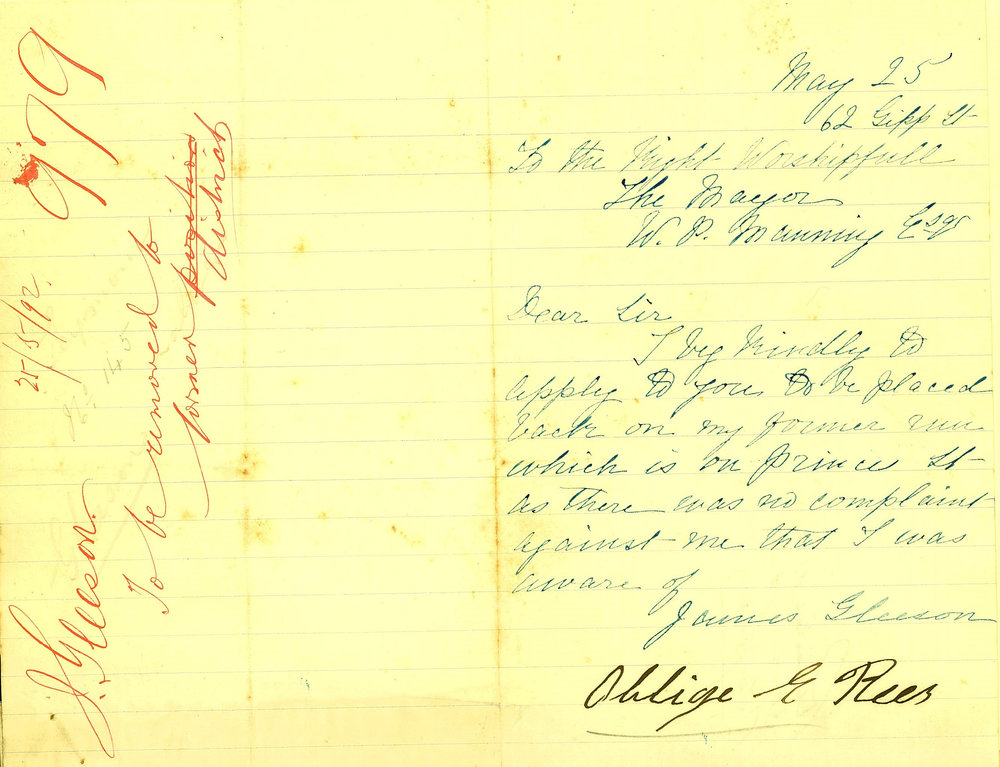 May 25
62 Gipp St
To the Right Worshipfull
The Mayor
W. P. Manning Esqr
Dear Sir
I beg kindly to
apply to you to be placed
back on my former run
which is on Prince St
as there was no complaint
against me that I was
aware of
James Gleeson
Oblige E Rees
979
25/5/92.
J. Gleeson.
To be removed to
former position
district